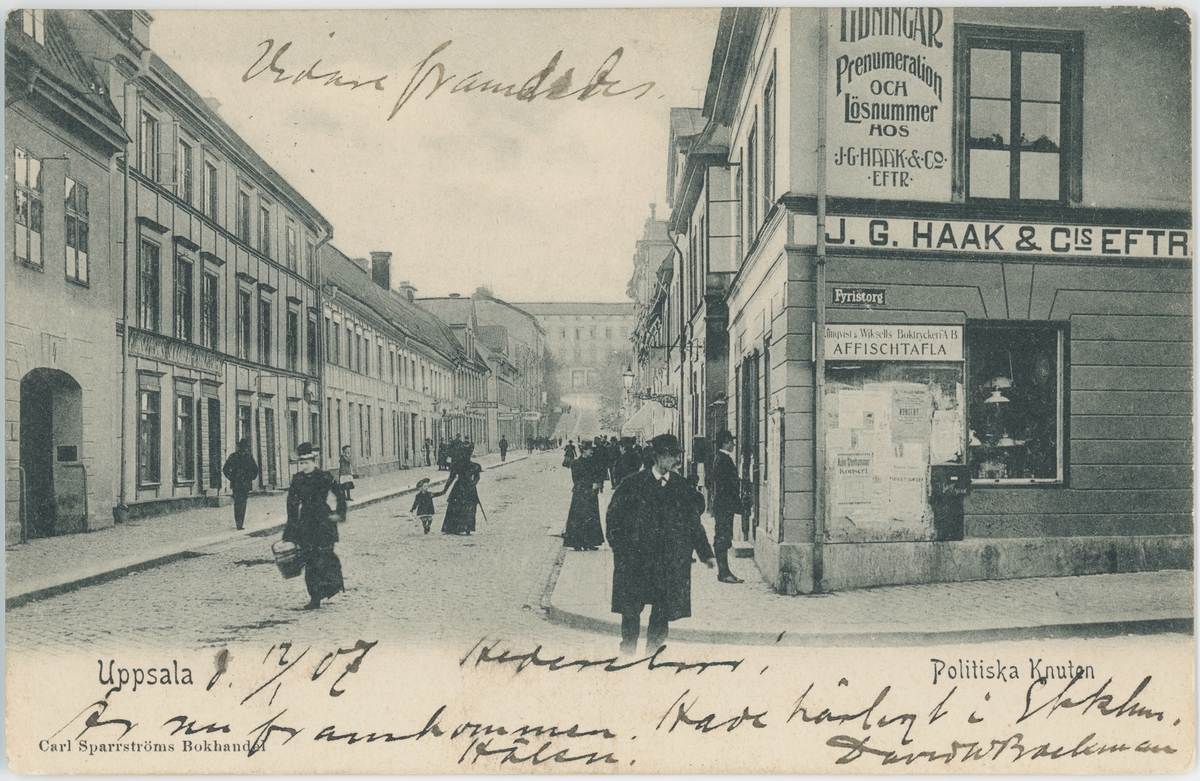 Vidare framdeles.
TIDNINGAR
Prenumeration
OCH
Lösnummer
HOS
J.G.HAAK.&.Co.
·EFTR·
J. G. HAAK & CIS EFTR
Fyristorg
Almqvist & Wiksells Boktryckeri A.B.
AFFISCHTAFLA
KONSERT
Konsert
Uppsala d. 12/1 07
Politiska Knuten
Är nu framkommen. Hade härligt i Ekeln.
Carl Sparrströms Bokhandel
Hälsn.
David W Backman